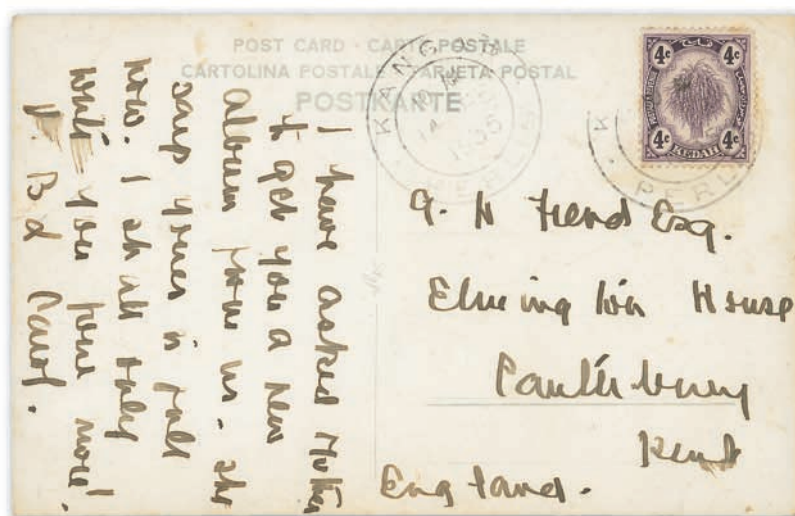 POST CARD - CARTE POSTALE
CARTOLINA POSTALE - TARJETA POSTAL
POSTKARTE
KANGAR
14
1935
PERLIS
4c
4c
4c
4c
KEDAH
PERLI
I have asked Mother
to get you a new
album from us. She
says yours is full
now. I shall only
write you four more!
Esq.
House
Canterbury
Kent
England.